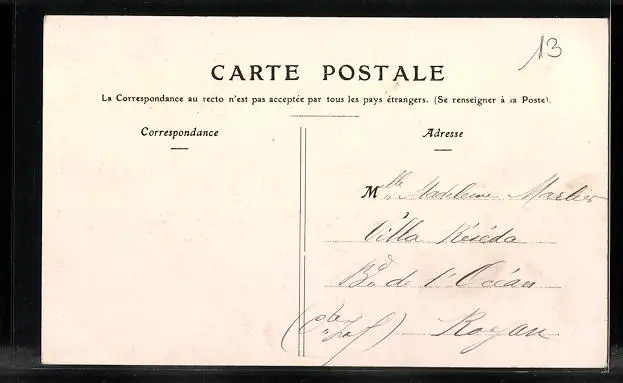 13
CARTE POSTALE
La Correspondance au recto n'est pas acceptée par tous les pays étrangers. (Se renseigner à la Poste).
Correspondance
Adresse
Mlle Madeleine Marlier
Villa Réséda
Bd de l'Océan
(Cte Inf) Royan